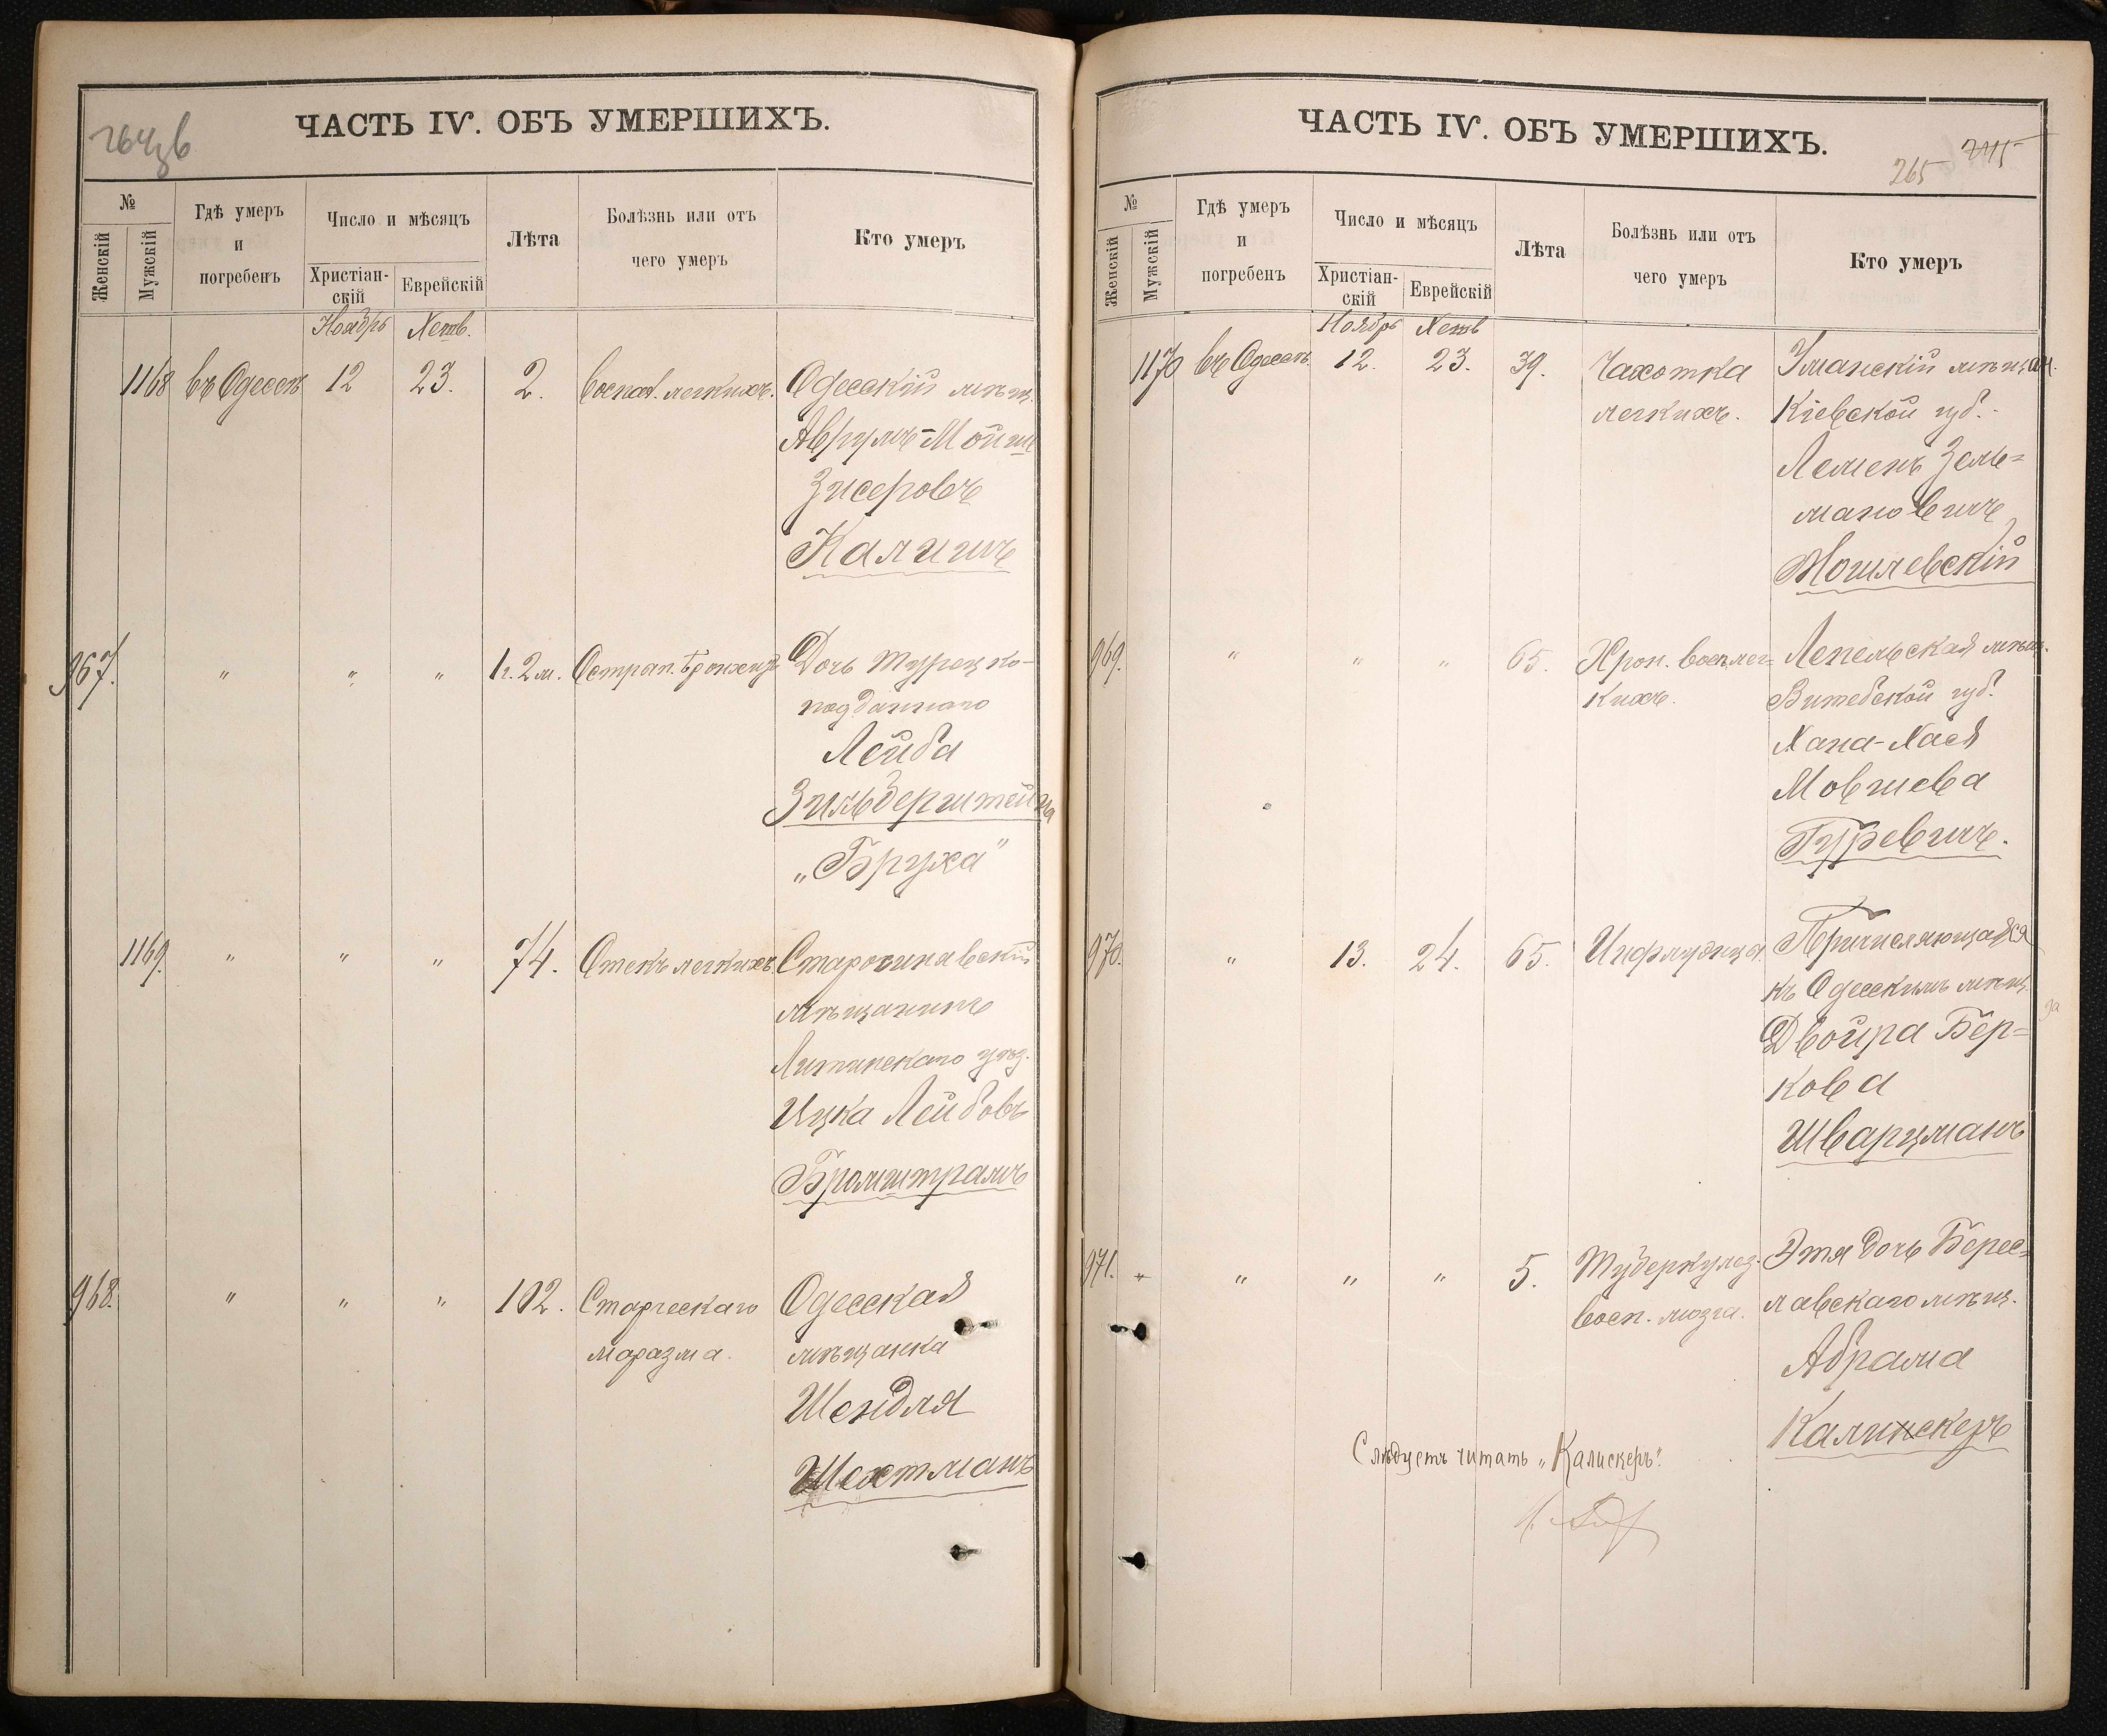 ЧАСТЬ IV. ОБЪ УМЕРШИХЪ.
264 зв
№
Женскій
Мужскій
Гдѣ умеръ
и
погребенъ
Число и мѣсяцъ
Христіан-
скій
Еврейскій
Лѣта
Болѣзнь или отъ
чего умеръ
Кто умеръ
Ноябрь Хешв.
1168 въ Одессѣ 12 23. 2. Воспал. легкихъ. Одесскій мѣщ.
Аврумъ-Мойше
Зисеровъ
Калишъ
967. " " " 1 г. 2 м. Острый бронхитъ Дочь турецко-
подданнаго
Лейба
Зильберштейна
„Бруха"
1169. " " " 74. Отекъ легкихъ. Старосинавскій
мѣщанинъ
Литинскаго уѣз.
Ицка Лейбовъ
Бромштрамъ
968. " " " 102. Старческаго Одесская
маразма. мѣщанка
Шендля
Шехтманъ
ЧАСТЬ IV. ОБЪ УМЕРШИХЪ.
265
№
Женскій
Мужскій
Гдѣ умеръ
и
погребенъ
Число и мѣсяцъ
Христіан-
скій
Еврейскій
Лѣта
Болѣзнь или отъ
чего умеръ
Кто умеръ
Ноябрь Хешв
1170 въ Одессѣ. 12. 23. 39. Чахотка Уманскій мѣщан.
легкихъ. Кіевской губ.
Лемень Зель=
мановичъ
Могилевскій
969. " " " 65. Хрон. восп. лег= Лепельская мѣщ.
кихъ. Витебской губ.
Хана-Хася
Мовшева
Гуревичъ.
970. " 13. 24. 65. Инфлуэнца. Причисляющаяся
къ Одесскимъ мѣщ.
Двойра Бер=
кова
Шварцманъ
971. " " " " 5. Туберкулез. Этя дочь Берес=
восп. мозга. лавскаго мѣщ.
Абрама
Калинскеръ
Слѣдуетъ читать „Калискеръ".